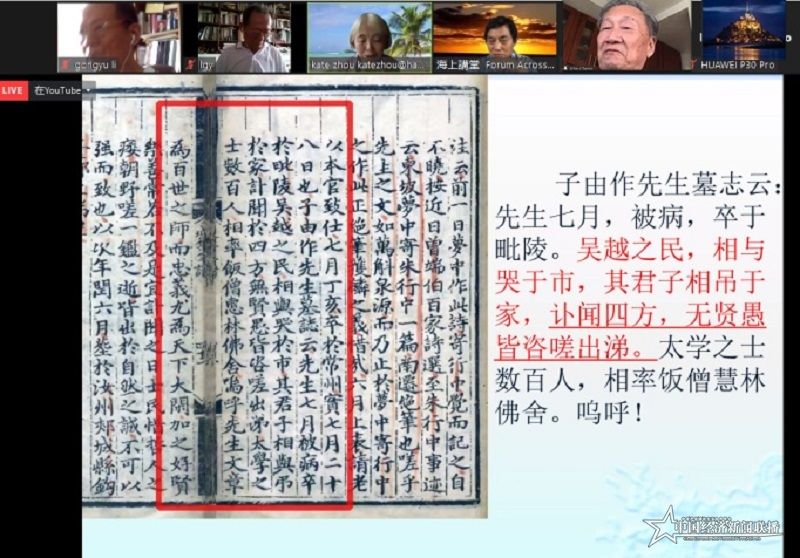 gongyu li
lgy
kate zhou katezhou@ha...
海上講堂 Forum Across...
HUAWEI P30 Pro
LIVE 在YouTube
注云前一日夢中作此詩寄行中覺而記之自
不曉按近日曽端伯百家詩選至朱行中事迹
云東坡夢中寄朱行中一篇南遷絶筆也嗟乎
先生之文如萬斛泉源而乃止於夢中寄行中
之作此正絶筆獲麟之義 六月上表請老
以本官致仕七月丁亥卒於常州實七月二十
八日也子由作先生墓誌云先生七月被病卒
於毗陵吳越之民相與哭於市其君子相與吊
於家訃聞於四方無賢愚皆咨嗟出涕太學之
士數百人相率飯僧惠林佛舍嗚呼先生文章
為百世之師而忠義尤為天下大閑加之好賢
樂善常若不及是宜訃聞之日士民惜哲人之
痿朝野嗟一鑑之逝皆出於自然之誠不可以
强而致也以次年閏六月葬於汝州郟城縣鈞
子由作先生墓志云：
先生七月，被病，卒于
毗陵。吴越之民，相与
哭于市，其君子相吊于
家，讣闻四方，无贤愚
皆咨嗟出涕。太学之士
数百人，相率饭僧慧林
佛舍。呜呼！
中国经济新闻联播